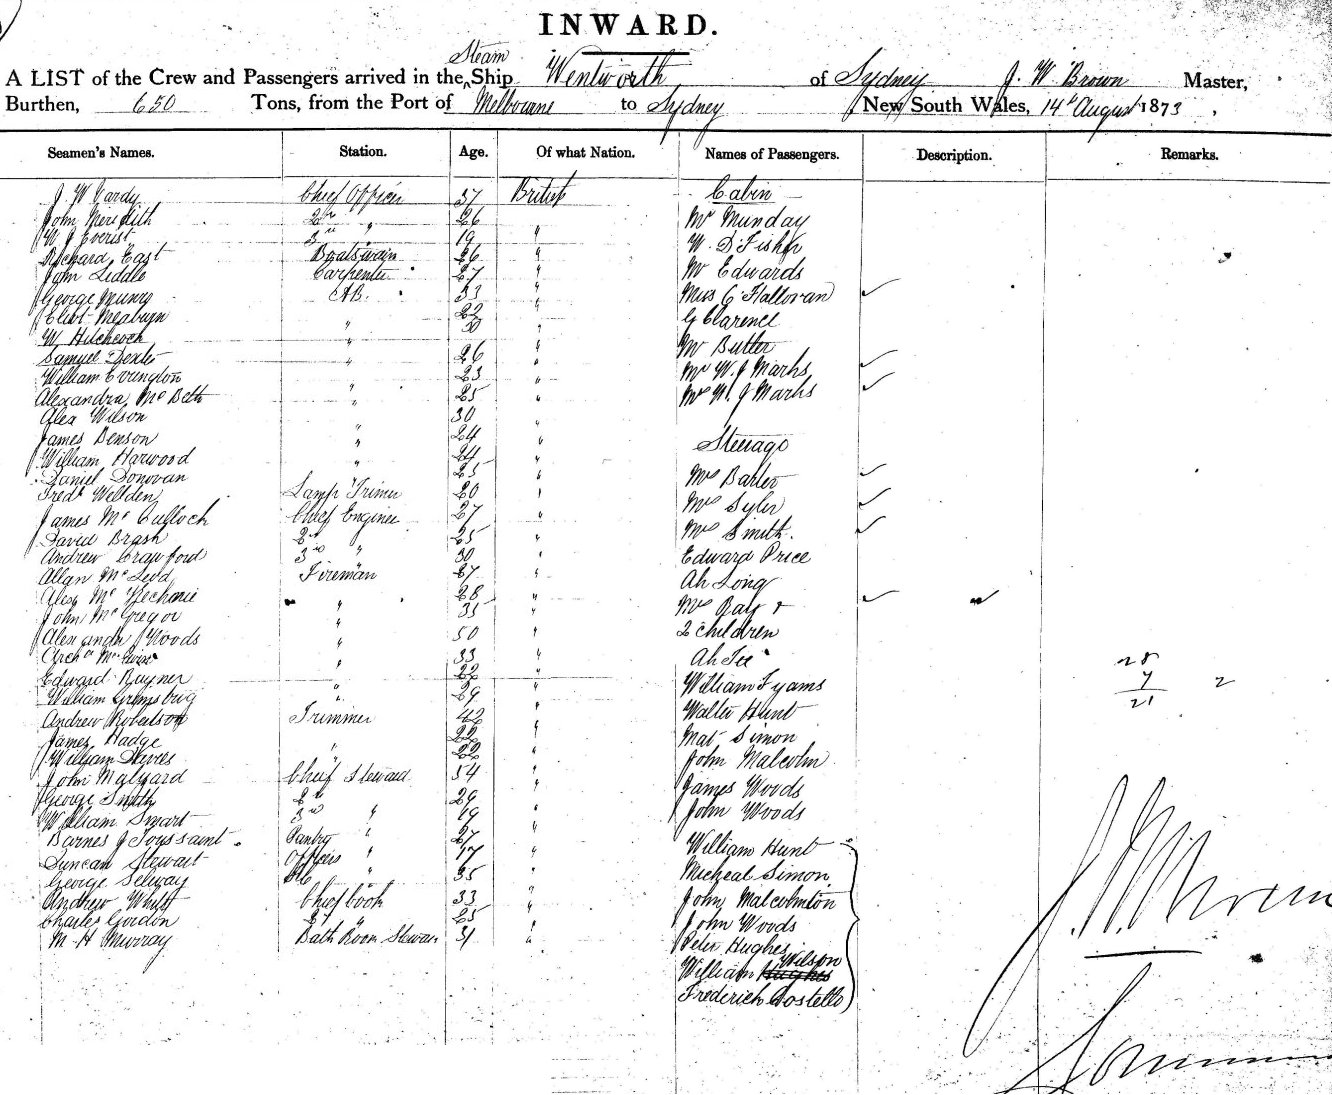 INWARD.
Steam
A LIST of the Crew and Passengers arrived in the Ship Wentworth of Sydney J. W. Brown Master,
Burthen, 650 Tons, from the Port of Melbourne to Sydney New South Wales, 14th August 1873.
Seamen's Names. Station. Age. Of what Nation. Names of Passengers. Description. Remarks.
J W Vardy Chief Officer 37 British Cabin
John Meredith 2nd " 26 Mr Munday
W J Everist 3rd " 19 " W. D Fisher
Richard East Boatswain 26 "
John Liddle Carpenter 27 " Mr Edwards
George Munro AB. 33 " Miss O'Hallovan
Eliot 22 G Clarence
W Hitchcock " 30 "
Samuel Dexter " 26 " Mr Butler
William Evington 23 " Mr W. J Marks
Alexandra McBeth " 25 " Mrs W. J Marks
Alex Wilson " 30
James Benson " 24 " Steerage
William Harwood " 24 "
Daniel Donovan " 25 " Mrs Barter
Fredk Weldden Lamp Trimer 20 " Mrs Syler
James McCulloch Chief Engineer 27 "
David Brash 2nd " 25 " Mrs Smith.
Andrew Crawford 3rd " 30 " Edward Price
Allan McLeod Fireman 27 " Ah Long
Alex McKechnie 28 " Mrs Ray &
John McGregor " 35 "
Alexander Woods " 50 " 2 children
Archd 33 " Ah Tee 28
Edward Rayner " 22 " 7 2
William Grimsbrig " 29 William Fyams 21
Andrew Robertson Trimmer 42 " Walter Hunt
James Hadge 22 " Mat Simon
William Davies " 22 " John Malcolm
John Malyard Chief Steward 54 "
George Smith 2nd 29 " James Woods
William Smart 3rd " 19 " John Woods
Barnes J Toussaint Pantry " 27
Duncan Stewart Officers " 17 " William Hunt
George Selway " 35 " Micheal Simon
Andrew White Chief Cook 33 " John Malcolmton
Charles Gordon 2nd " 25 " John Woods
M. H Murray Bath Room Steward 31 " Peter Hughes
William Hughes Wilson
Frederich Costello